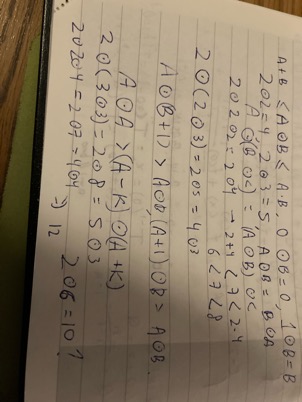 A+B ≤ A⊙B ≤ A·B, 0⊙B=0, 1⊙B=B
2⊙2=4 2⊙3=5 A⊙B=B⊙A
A⊙(B⊙C) = (A⊙B)⊙C
2⊙2⊙2=2⊙4 → 2+4<7<2·4
6<7<8
2⊙(2⊙3)=2⊙5=4⊙3
A⊙(B+1) > A⊙B, (A+1)⊙B > A⊙B
A⊙A > (A-K)⊙(A+K)
2⊙(3⊙3)=2⊙8=5⊙3
2⊙6=10?
2⊙2⊙4=2⊙7=4⊙4
12